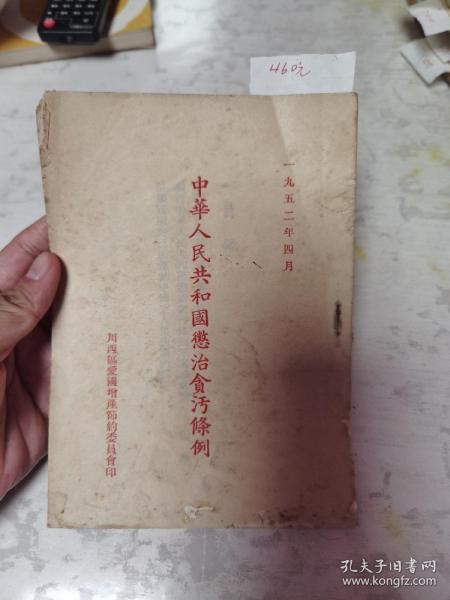 460元
一九五二年四月
中華人民共和國懲治貪污條例
川西區愛國增產節約委員會印
孔夫子旧书网
www.kongfz.com